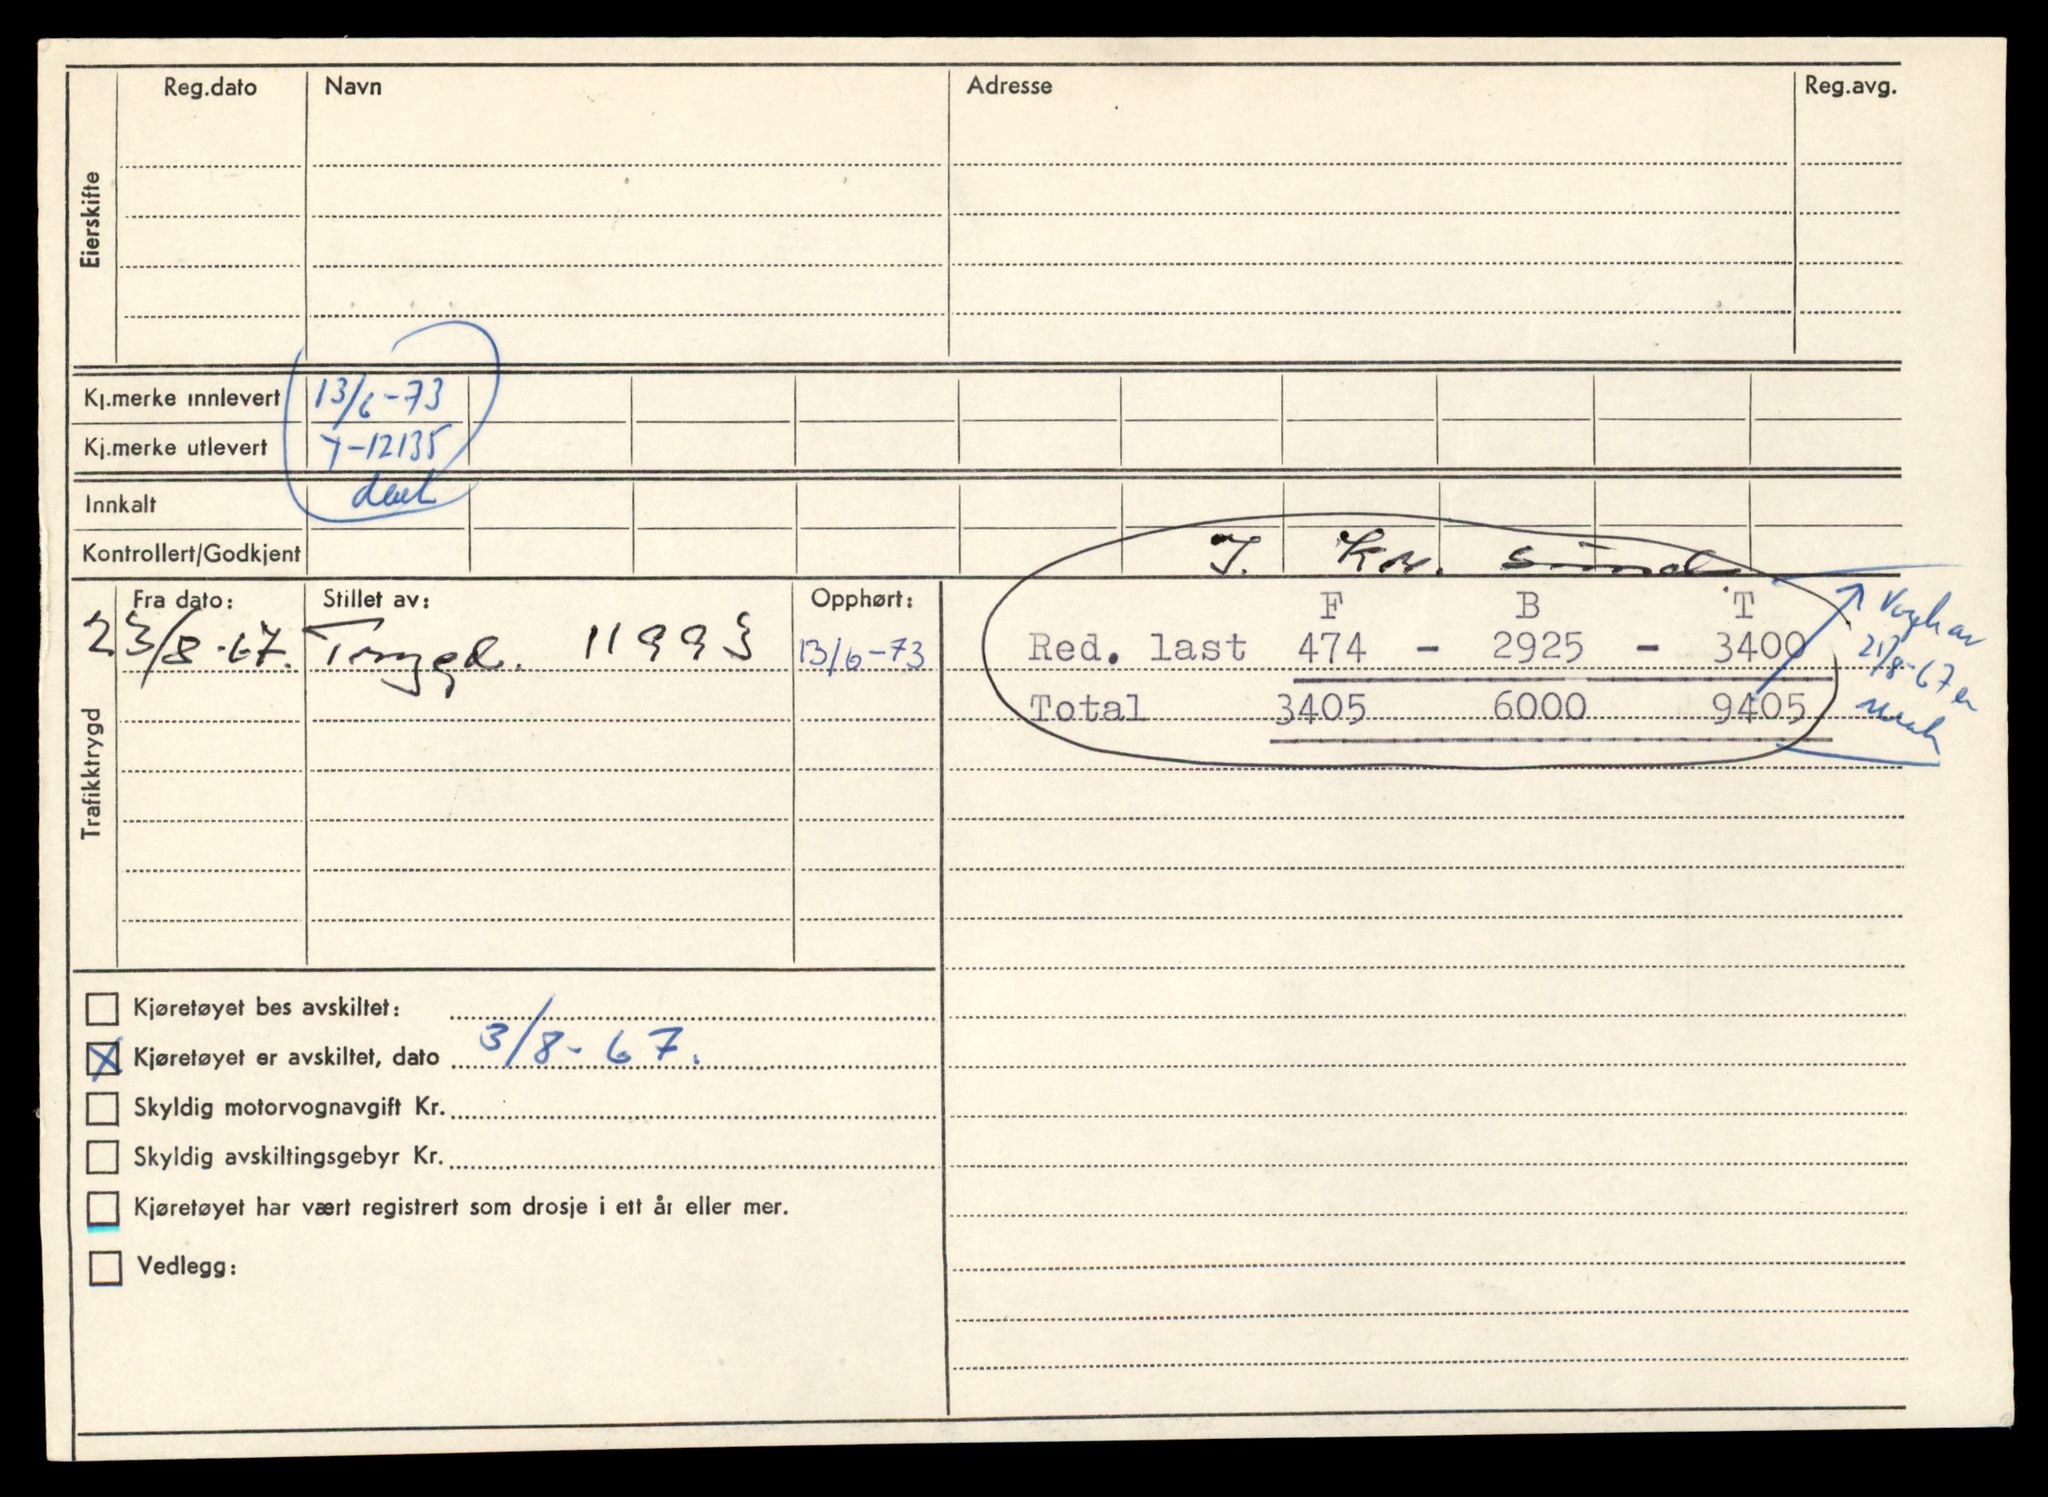 Eierskifte
Reg.dato Navn Adresse Reg.avg.
Kj.merke innlevert 13/6-73
Kj.merke utlevert Y-12135
Innkalt
Kontrollert/Godkjent
I. Kr. sund
Trafikktrygd
Fra dato: Stillet av: Opphørt:
23/8-67. Trygd. 11993 13/6-73
F B T
Red. last 474 - 2925 - 3400
Total 3405 6000 9405
21/8-67
Kjøretøyet bes avskiltet:
X Kjøretøyet er avskiltet, dato 3/8-67.
Skyldig motorvognavgift Kr.
Skyldig avskiltingsgebyr Kr.
Kjøretøyet har vært registrert som drosje i ett år eller mer.
Vedlegg: